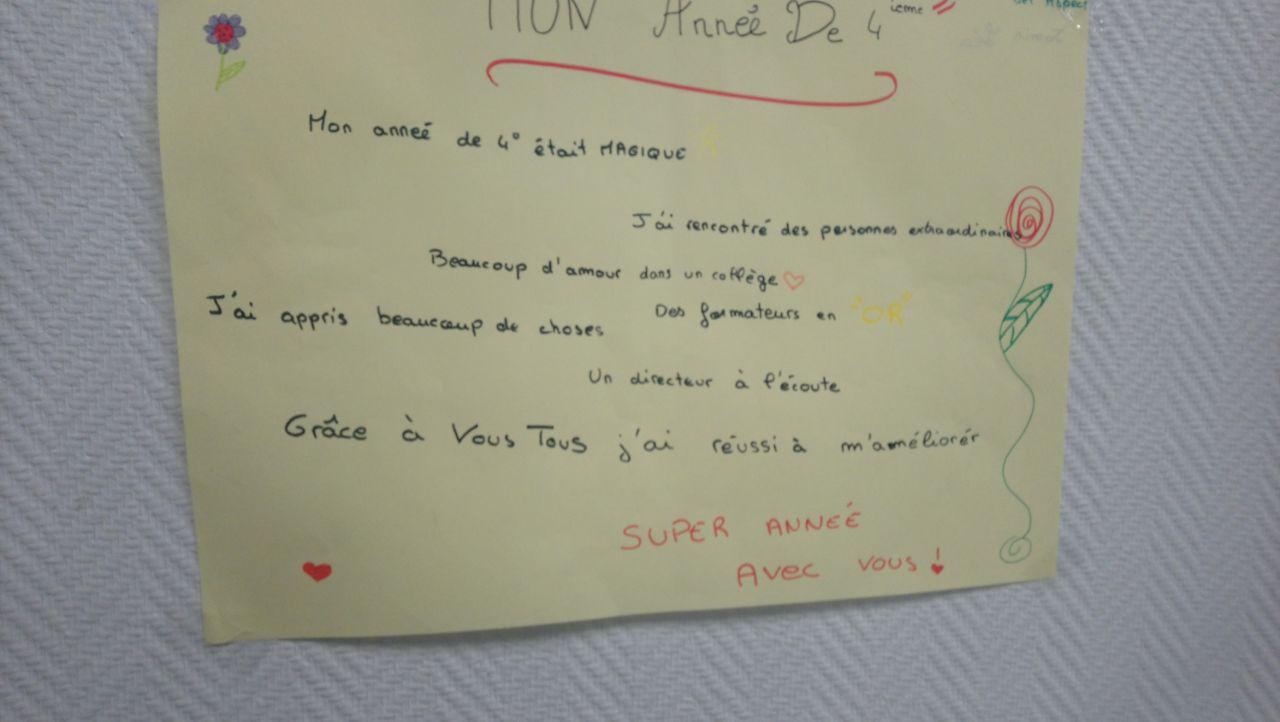 MON Anneé De 4 ieme
Mon anneé de 4° était MAGIQUE
J'ai rencontré des personnes extraordinaires
Beaucoup d'amour dans un collège
J'ai appris beaucoup de choses
Des formateurs en "OR"
Un directeur à l'écoute
Grâce à Vous Tous j'ai réussi à m'améliorér
SUPER ANNEÉ
Avec vous !